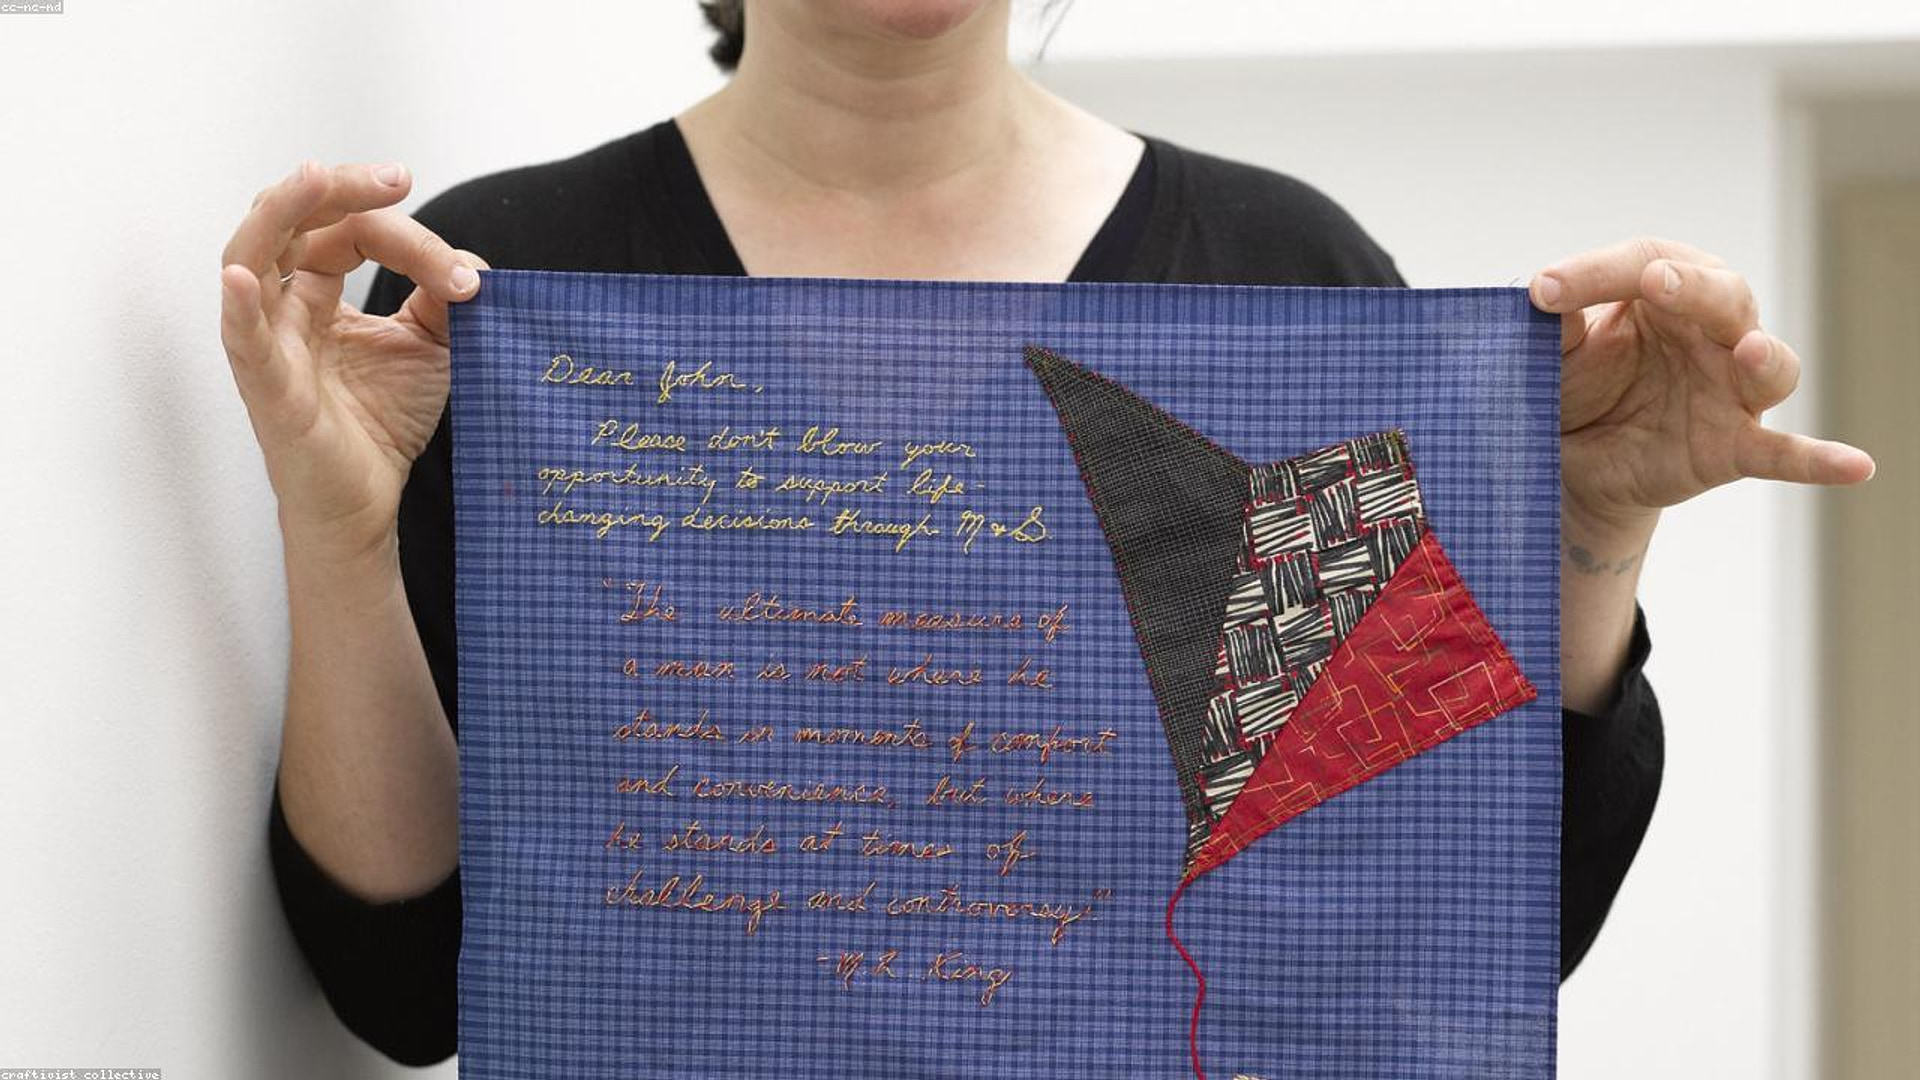 cc-nc-nd
Dear John,
Please don't blow your
opportunity to support life-
changing decisions through M & S.
"The ultimate measure of
a man is not where he
stands in moments of comfort
and convenience, but where
he stands at times of
challenge and controversy."
-M.L. King
craftivist collective